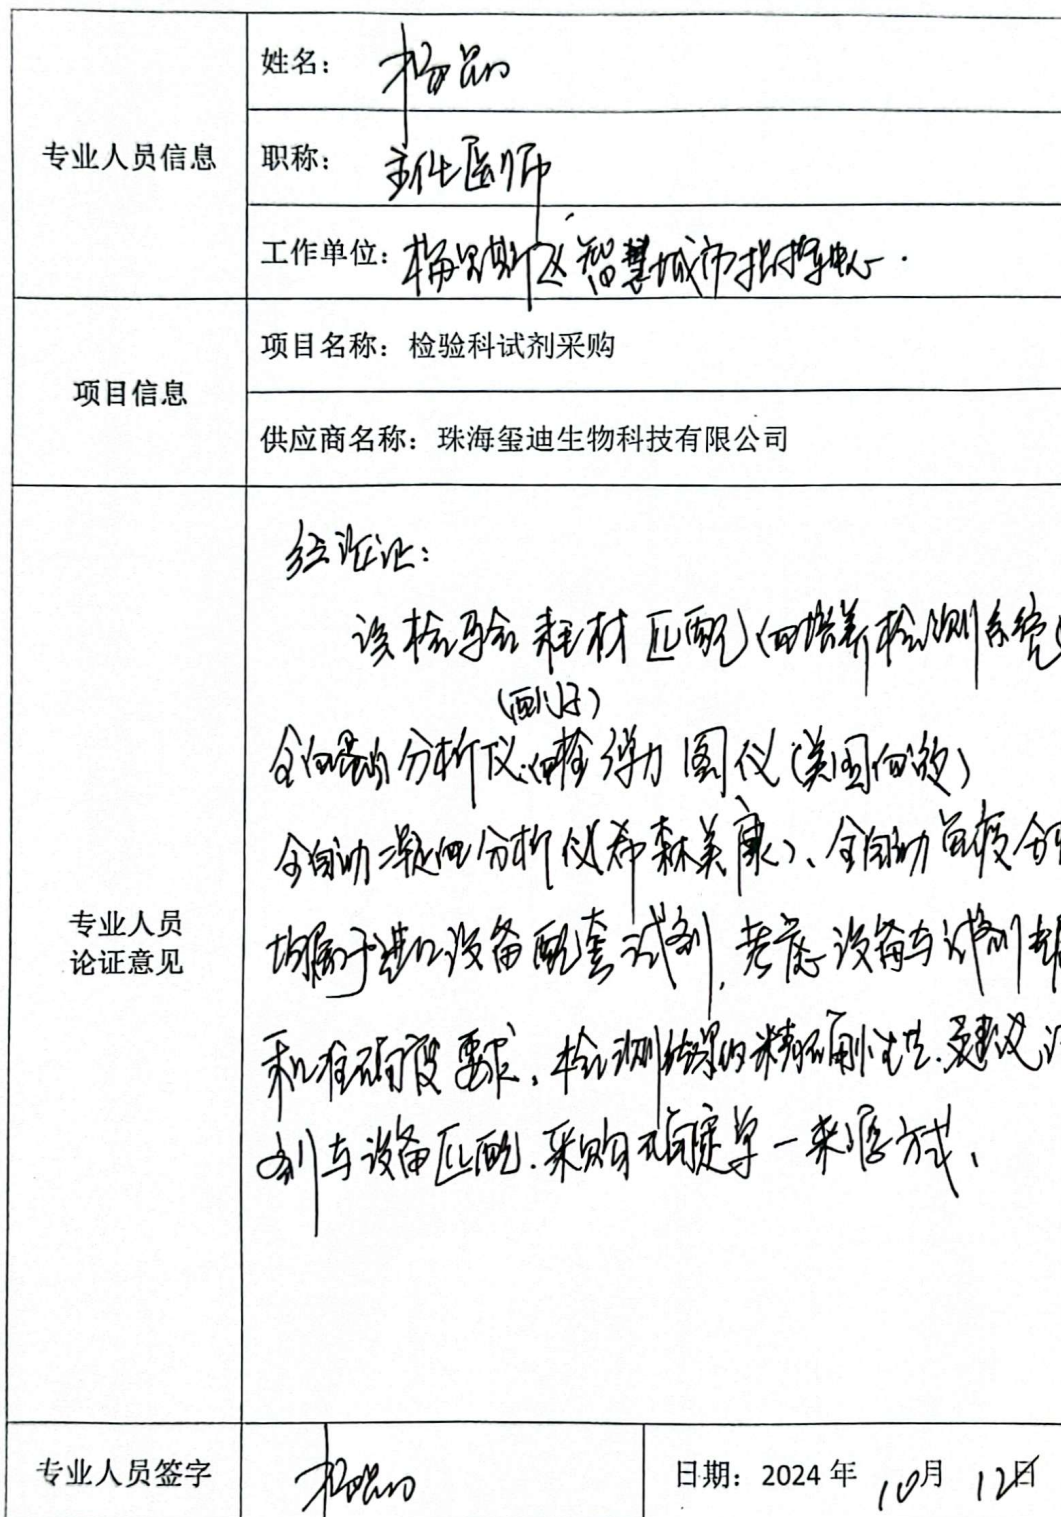 专业人员信息
姓名：杨
职称：主任医师
工作单位：梅里斯区智慧城市指挥中心.
项目信息
项目名称：检验科试剂采购
供应商名称：珠海玺迪生物科技有限公司
专业人员
论证意见
经论证：
该检验耗材匹配（血培养检测系统
全自动分析仪、血栓弹力图仪（美国血液）
全自动凝血分析仪（希森美康）、全自动免疫分
均属于进口设备配套试剂，考虑设备与试剂
和准确度要求，检测结果的精确性，建议
剂与设备匹配.采购确定单一来源方式、
专业人员签字
杨
日期：2024年 10月 12日